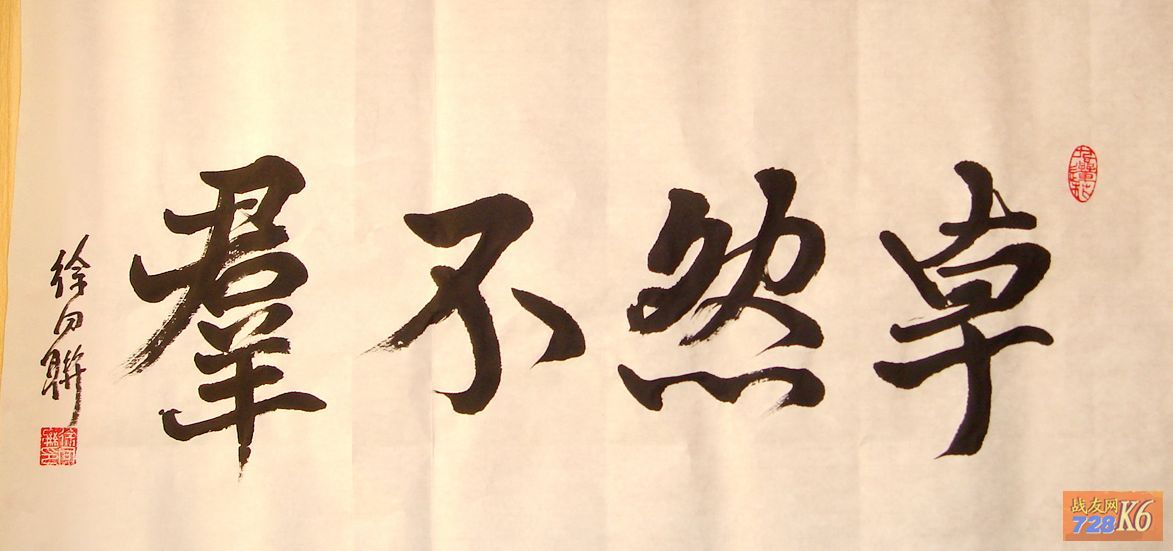 卓然不羣
徐同聨
战友网
728K6